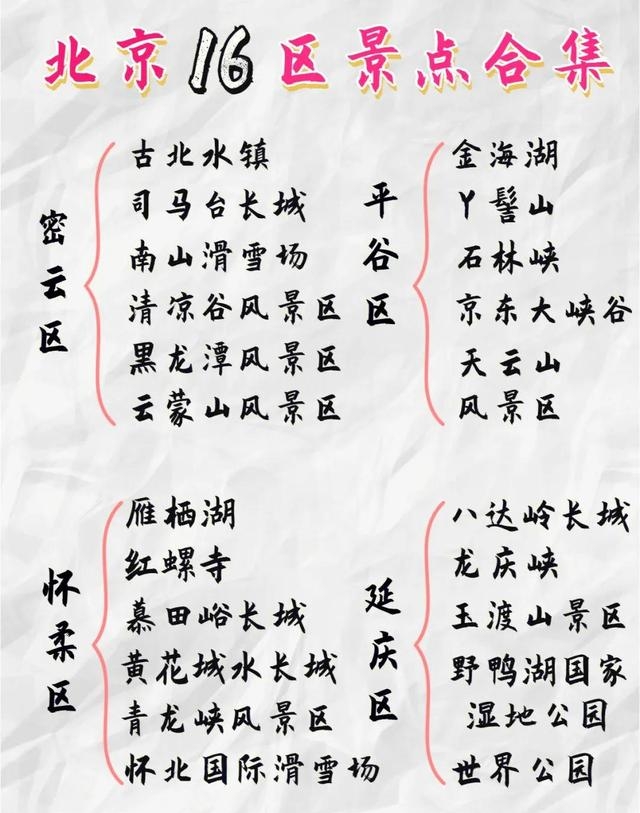 北京16区景点合集
密云区
古北水镇
司马台长城
南山滑雪场
清凉谷风景区
黑龙潭风景区
云蒙山风景区
平谷区
金海湖
丫髻山
石林峡
京东大峡谷
天云山
风景区
怀柔区
雁栖湖
红螺寺
慕田峪长城
黄花城水长城
青龙峡风景区
怀北国际滑雪场
延庆区
八达岭长城
龙庆峡
玉渡山景区
野鸭湖国家
湿地公园
世界公园